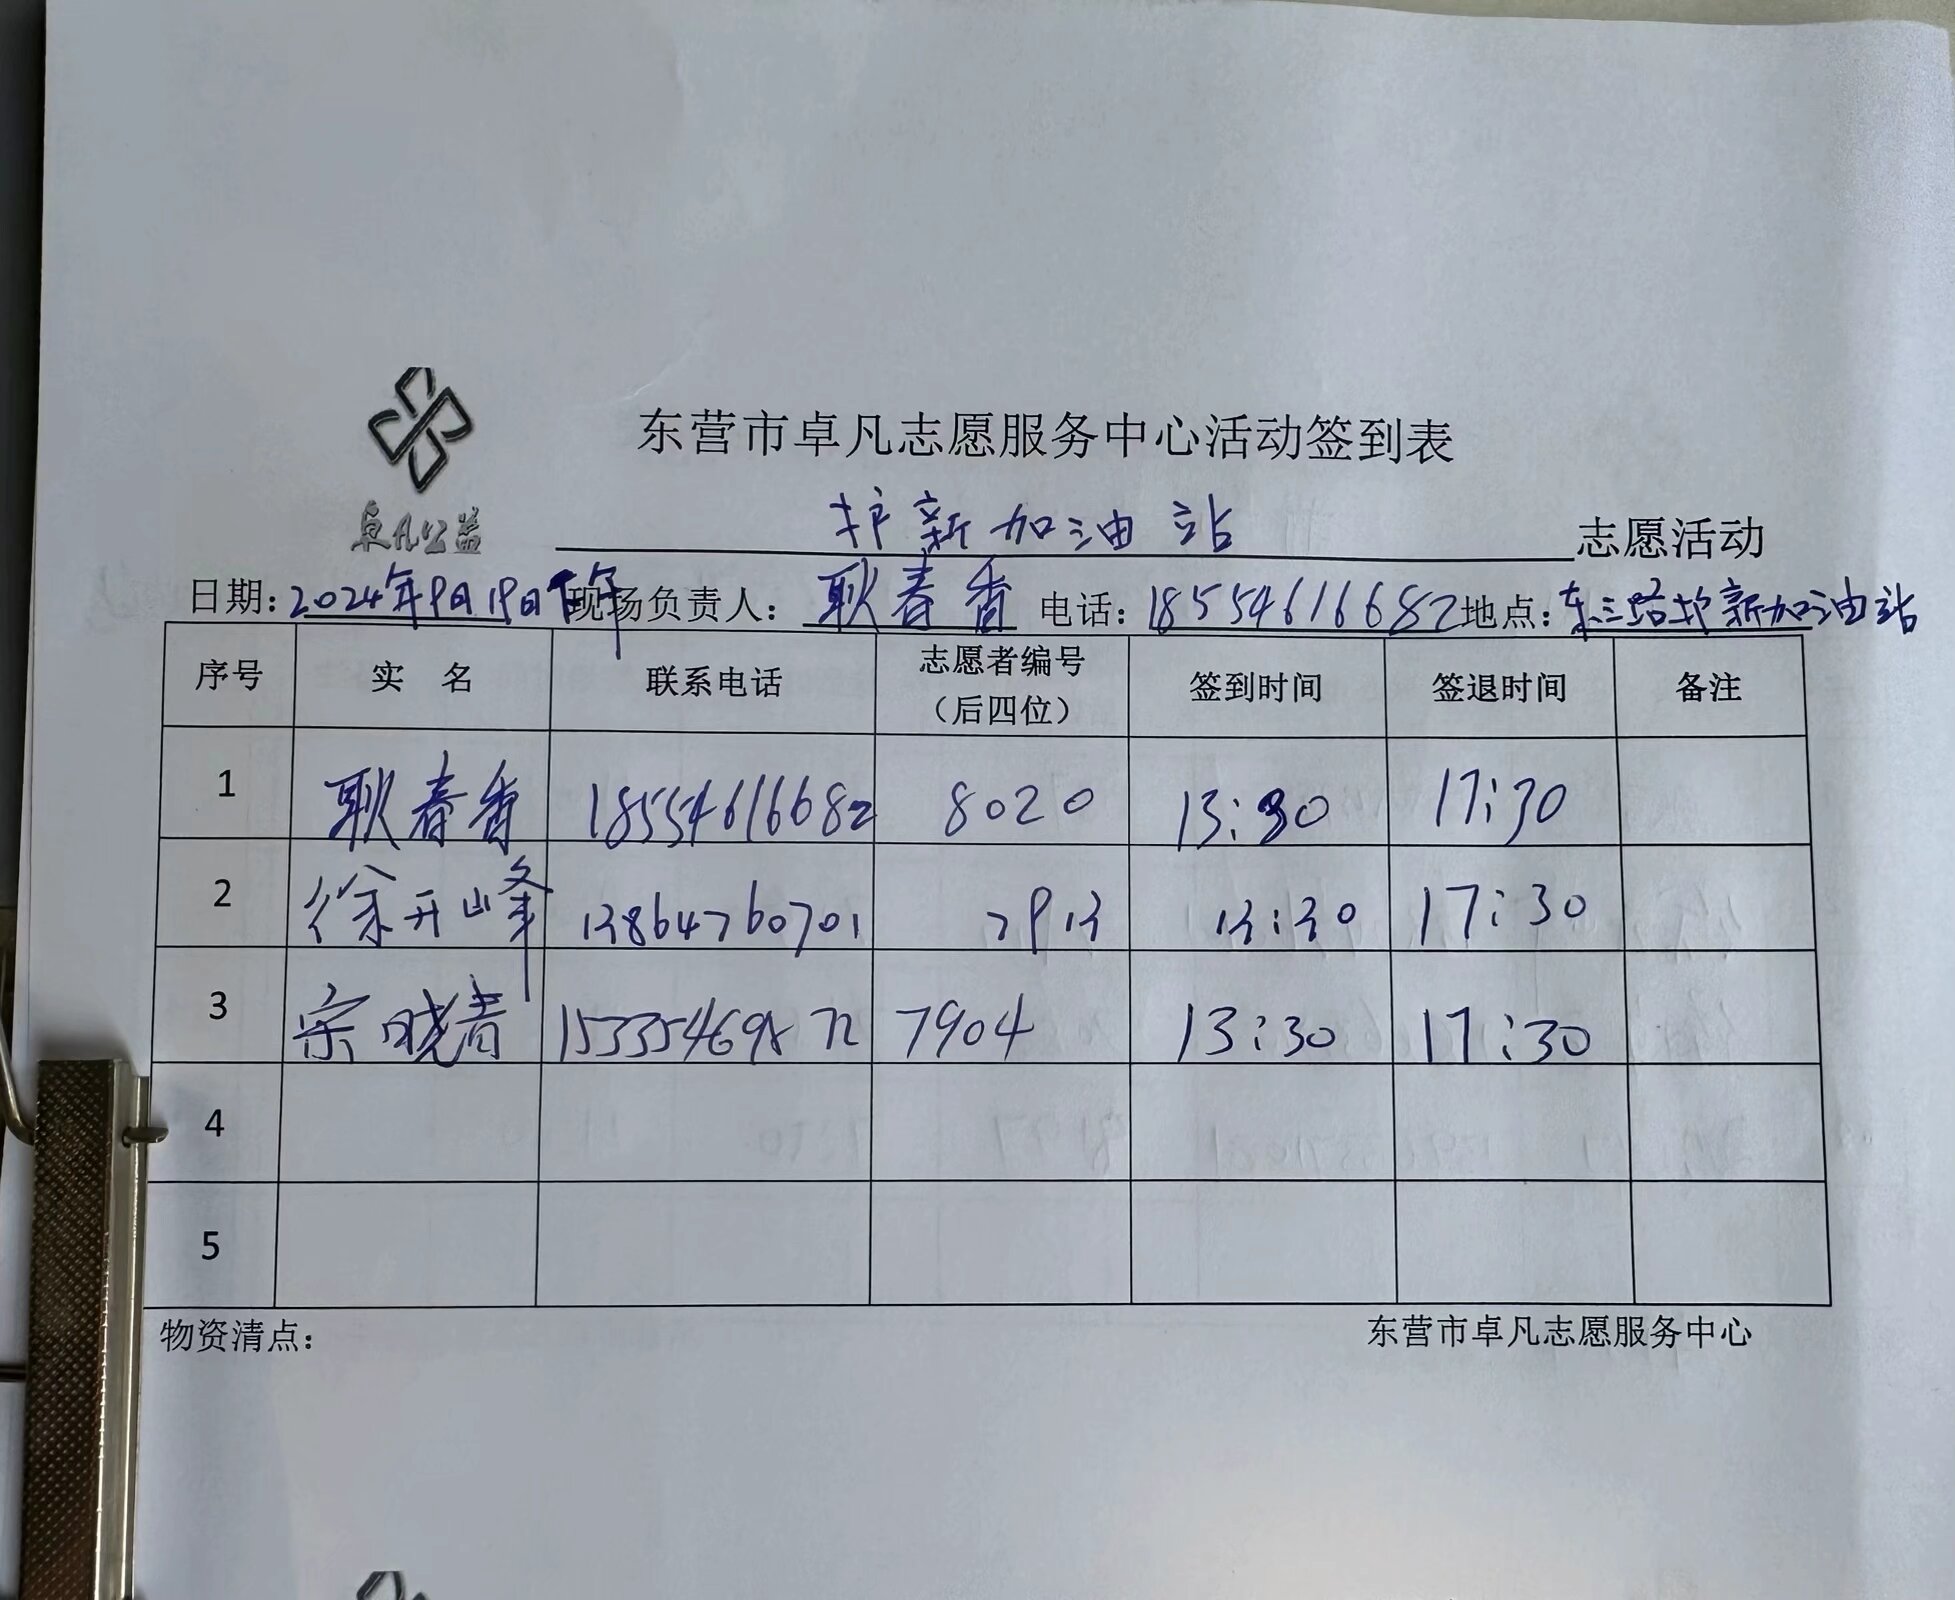 东营市卓凡志愿服务中心活动签到表
卓凡公益
护新加油站 志愿活动
日期：2024年9月19日下午 现场负责人：耿春香 电话：18554616682 地点：东三路护新加油站
序号 实 名 联系电话 志愿者编号（后四位） 签到时间 签退时间 备注
1 耿春香 18554616682 8020 13:30 17:30
2 徐开峰 13864760701 7913 13:30 17:30
3 宗晓青 7904 13:30 17:30
4
5
物资清点： 东营市卓凡志愿服务中心